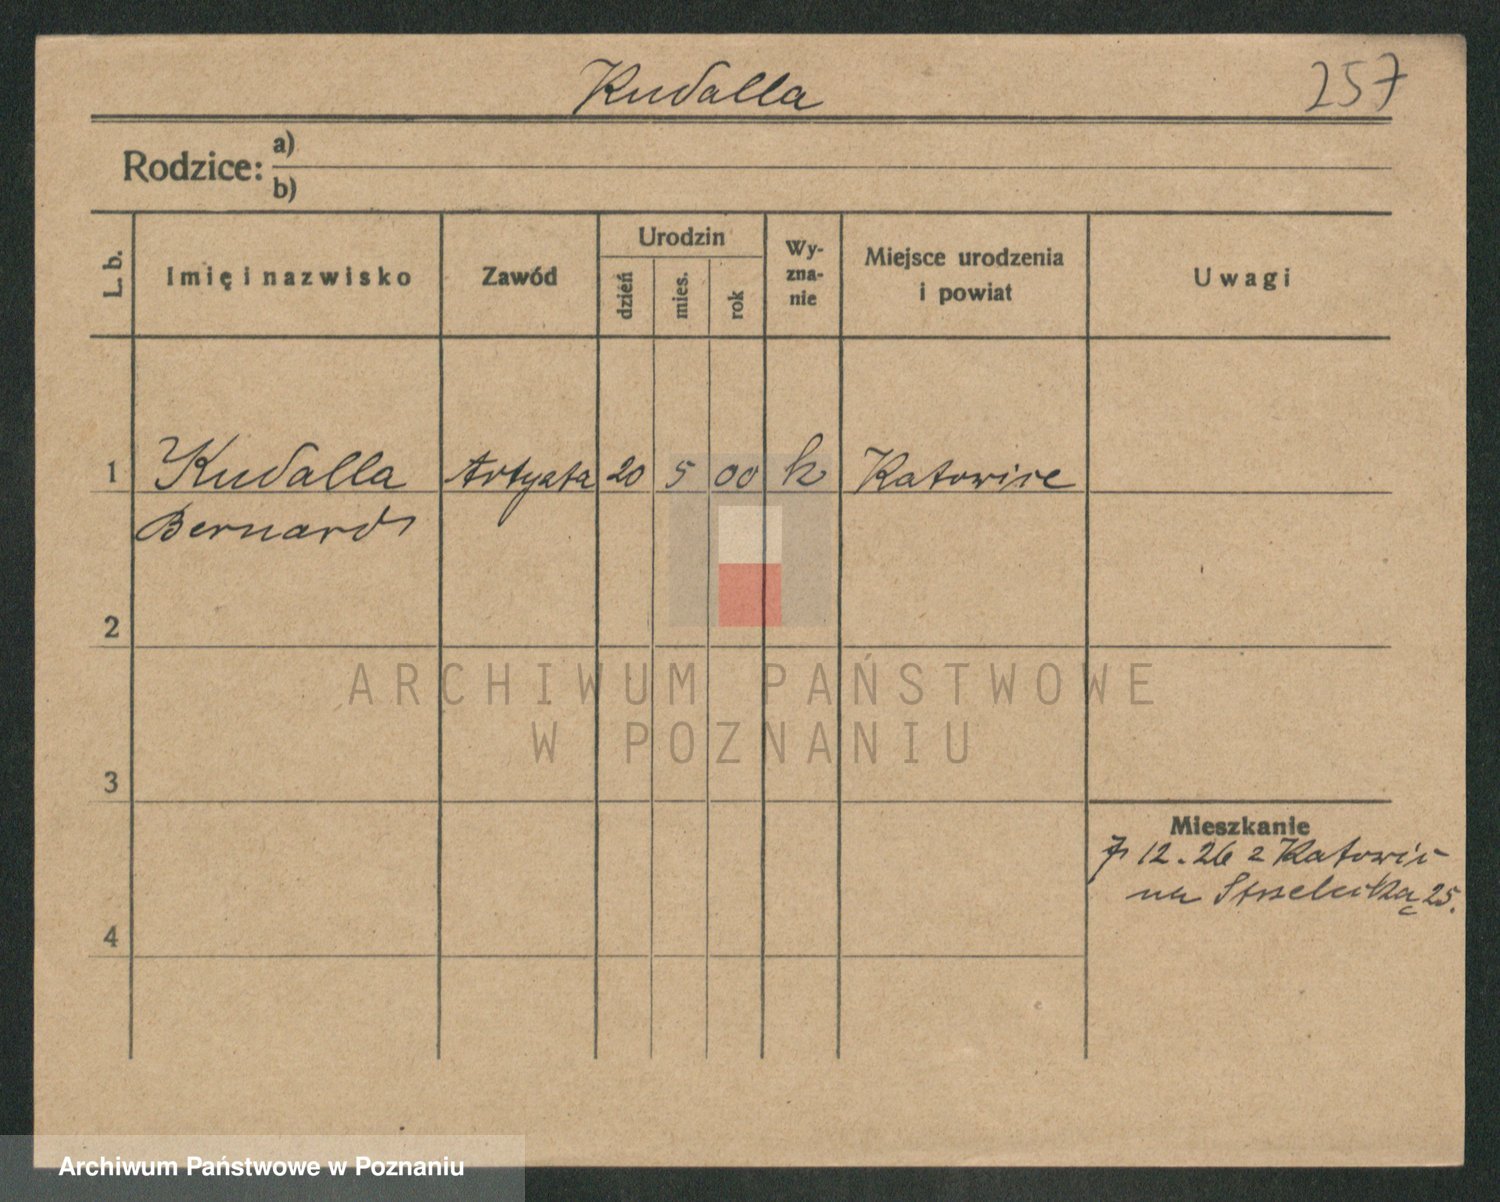 Kudalla
257
Rodzice: a)
b)
L. b.
Imię i nazwisko
Zawód
Urodzin
dzień
mies.
rok
Wy-
zna-
nie
Miejsce urodzenia
i powiat
Uwagi
1 Kudalla Artysta 20 5 00 k Katowice
Bernard
2
3
4
Mieszkanie
7 12.26 z Katowic
na Strzelecką 25.
ARCHIWUM PAŃSTWOWE
W POZNANIU
Archiwum Państwowe w Poznaniu